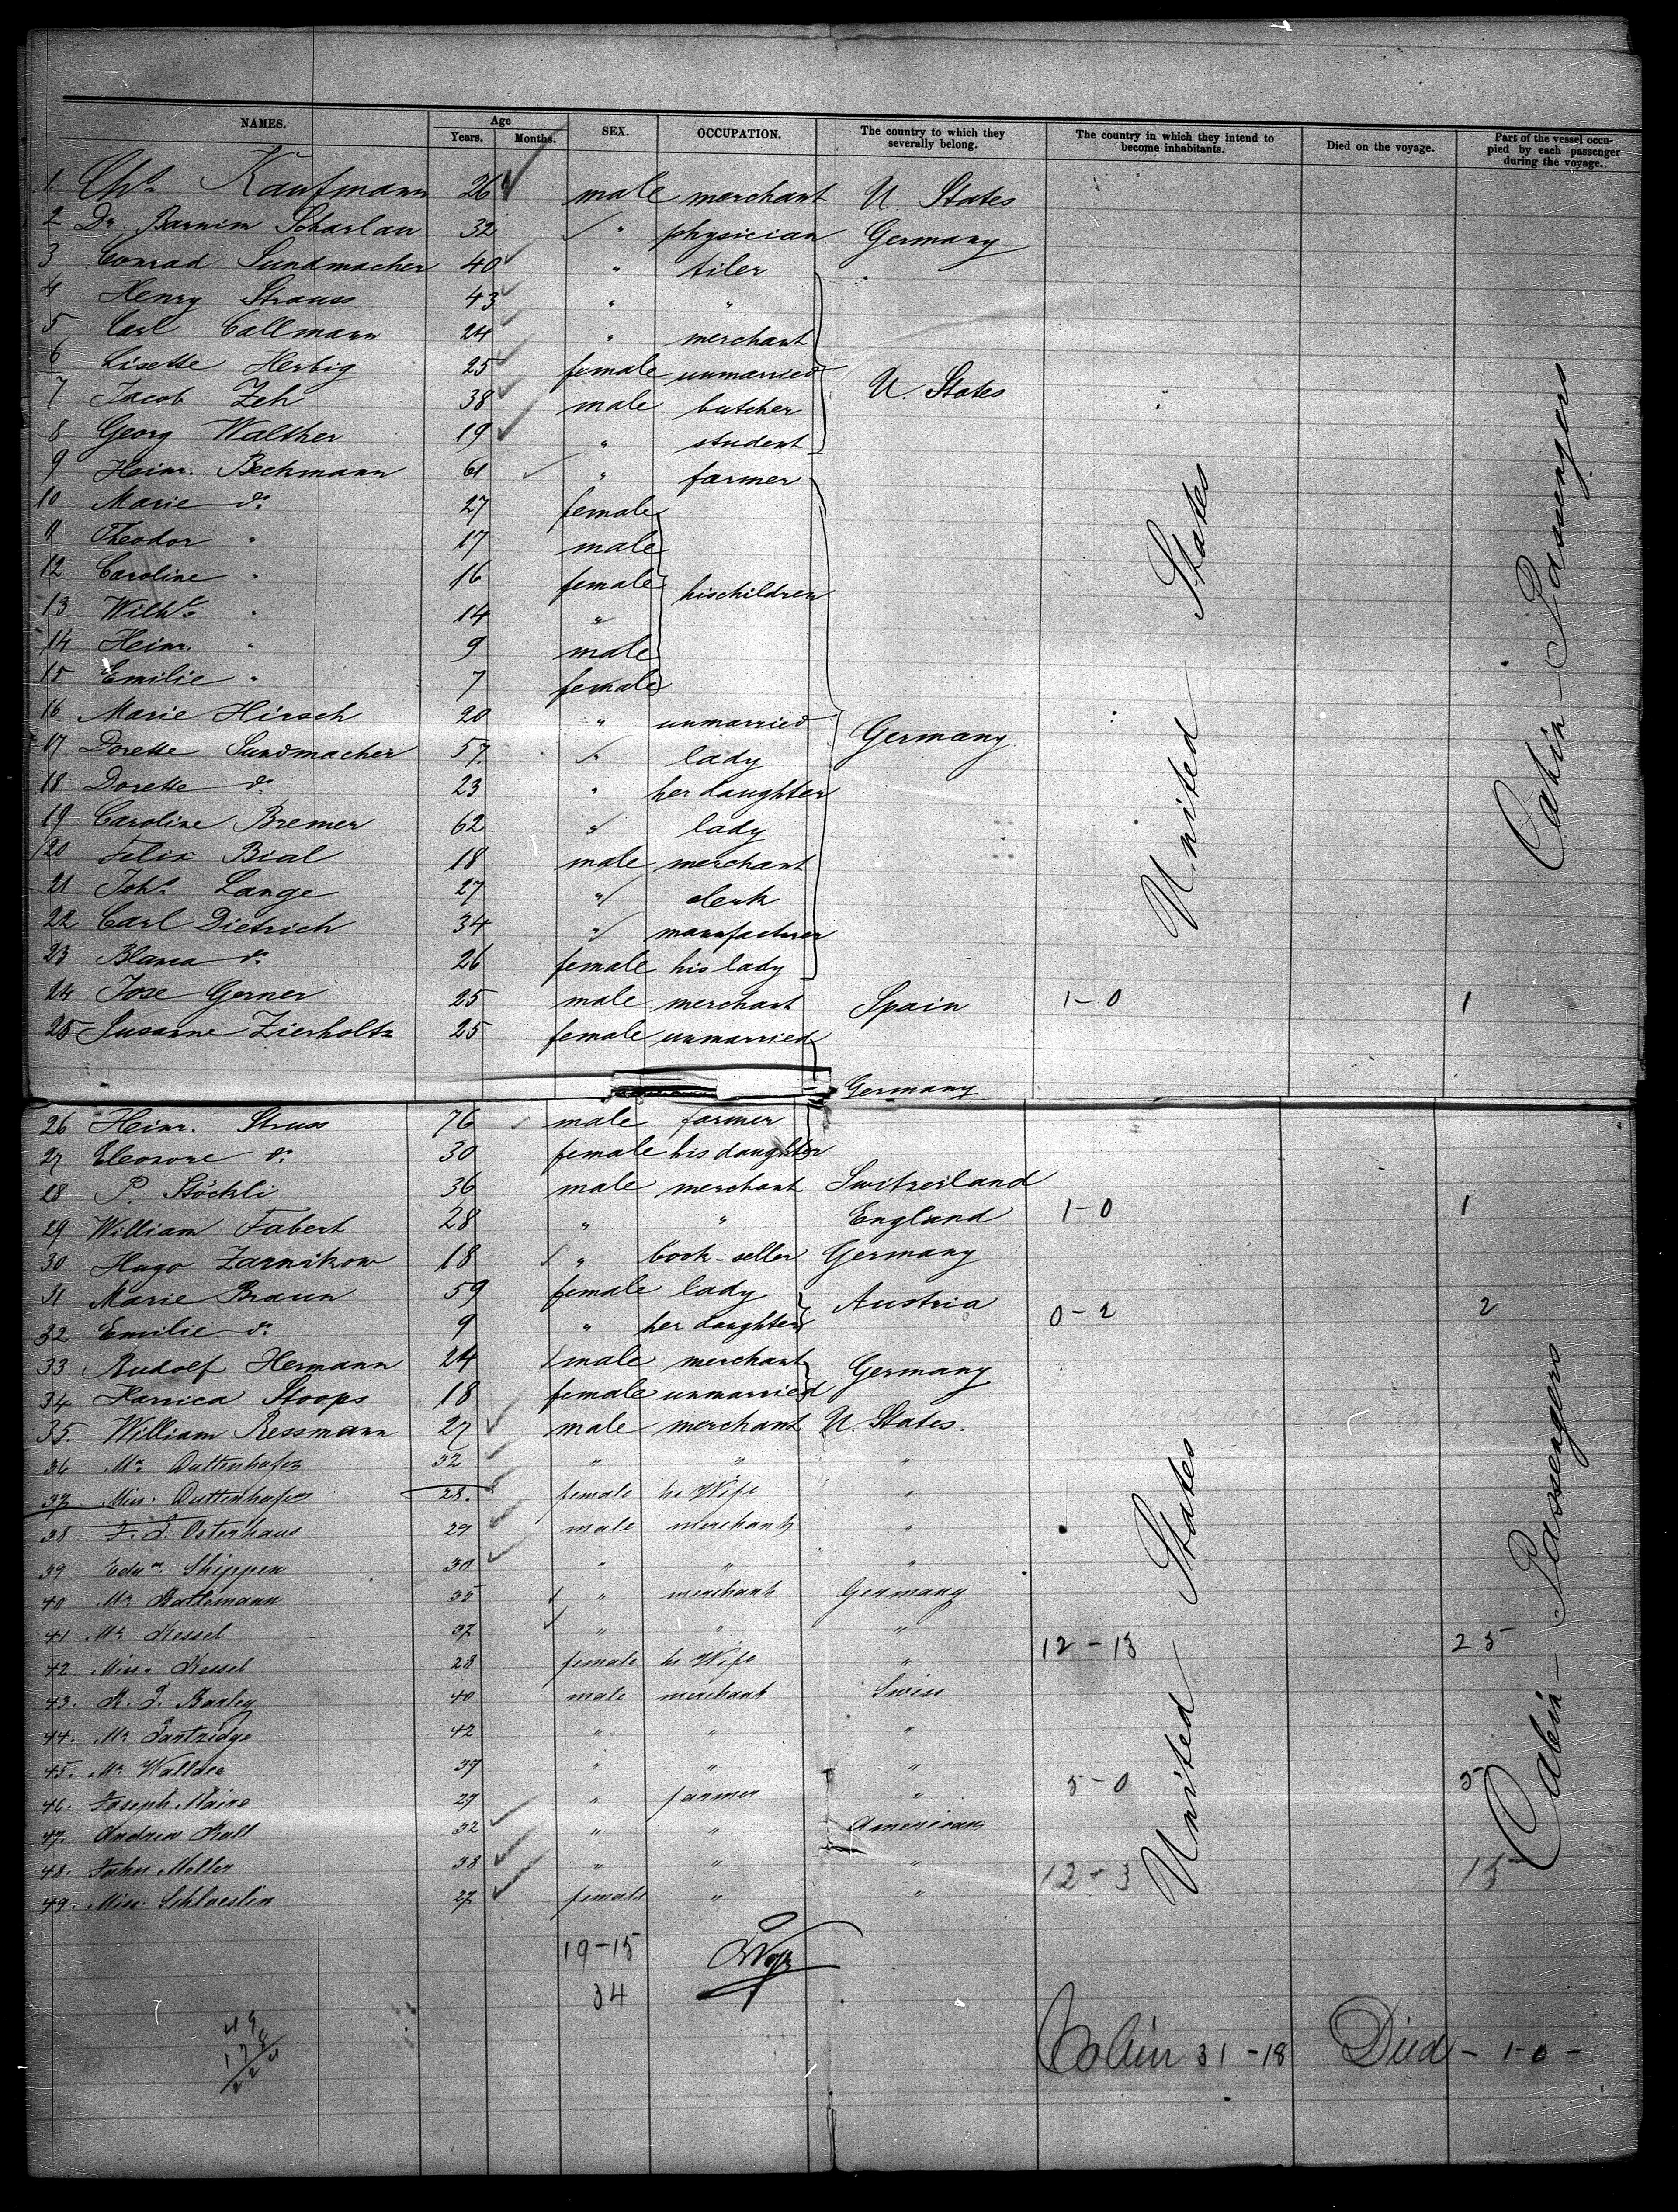 NAMES. Age SEX. OCCUPATION. The country to which they severally belong. The country in which they intend to become inhabitants. Died on the voyage. Part of the vessel occupied by each passenger during the voyage.
Years. Months.
1. Chs. Kaufmann 26 male merchant U States
2 Dr. Barnim Scharlau 32 " physician Germany
3 Conrad Sundmacher 40 " tiler
4 Henry Strauss 43 " "
5 Carl Callmann 24 " merchant
6 Lisette Herbig 25 female unmarried
7 Jacob Zeh 38 male butcher U. States
8 Georg Walther 19 " student
9 Heinr. Bechmann 61 " farmer
10 Marie do. 27 female
11 Theodor " 17 male
12 Caroline " 16 female his children
13 Wilhe. " 14 "
14 Heinr. " 9 male
15 Emilie " 7 female
16 Marie Hirsch 20 " unmarried
17 Dorette Sundmacher 57. " lady Germany
18 Dorette do. 23 " her daughter
19 Caroline Bremer 62 " lady
20 Felix Bial 18 male merchant
21 Johs. Lange 27 " clerk
22 Carl Dietrich 34 " manufacturer
23 Blanca do. 26 female his lady
24 Jose Gerner 25 male merchant Spain 1-0 1
25 Susanne Zierholtz 25 female unmarried
Germany
United States
Cabin-Passengers
26 Heinr. Struss 76 male farmer
27 Eleonore do. 30 female his daughter
28 P. Stöckli 36 male merchant Switzerland
29 William Fabert 28 " " England 1-0 1
30 Hugo Zarnikow 18 " book-seller Germany
31 Marie Braun 59 female lady
32 Emilie do. 9 " her daughter Austria 0-2 2
33 Rudolf Hermann 24 male merchant
34 Harrica Stoops 18 female unmarried Germany
35. William Ressmann 27 male merchant U. States.
36 Mr. Duttenhofer 32 " " "
37 Miss. Duttenhofer 28. female his Wife "
38 F. J. Osterhaus 29 male merchant "
39 Edw. Shippen 30 " " "
40 Mr. Rattemann 35 " merchant Germany
41 Mr. Kessel 37 " " "
42 Miss. Kessel 28 female his Wife " 12-13 25
43. R. J. Barley 40 male merchant Swiss
44. Mr. Partridge 42 " " "
45. Mr. Wallace 37 " " "
46. Joseph Maire 27 " farmer " 5-0 5
47. Andrea Kall 32 " " American
48. John Meller 38 " " "
49. Miss. Schloeslin 27 female " " 12-3 15
United States
Cabin-Passengers
19-15
34
Cabin 31-18 Died - 1-0-
49
178